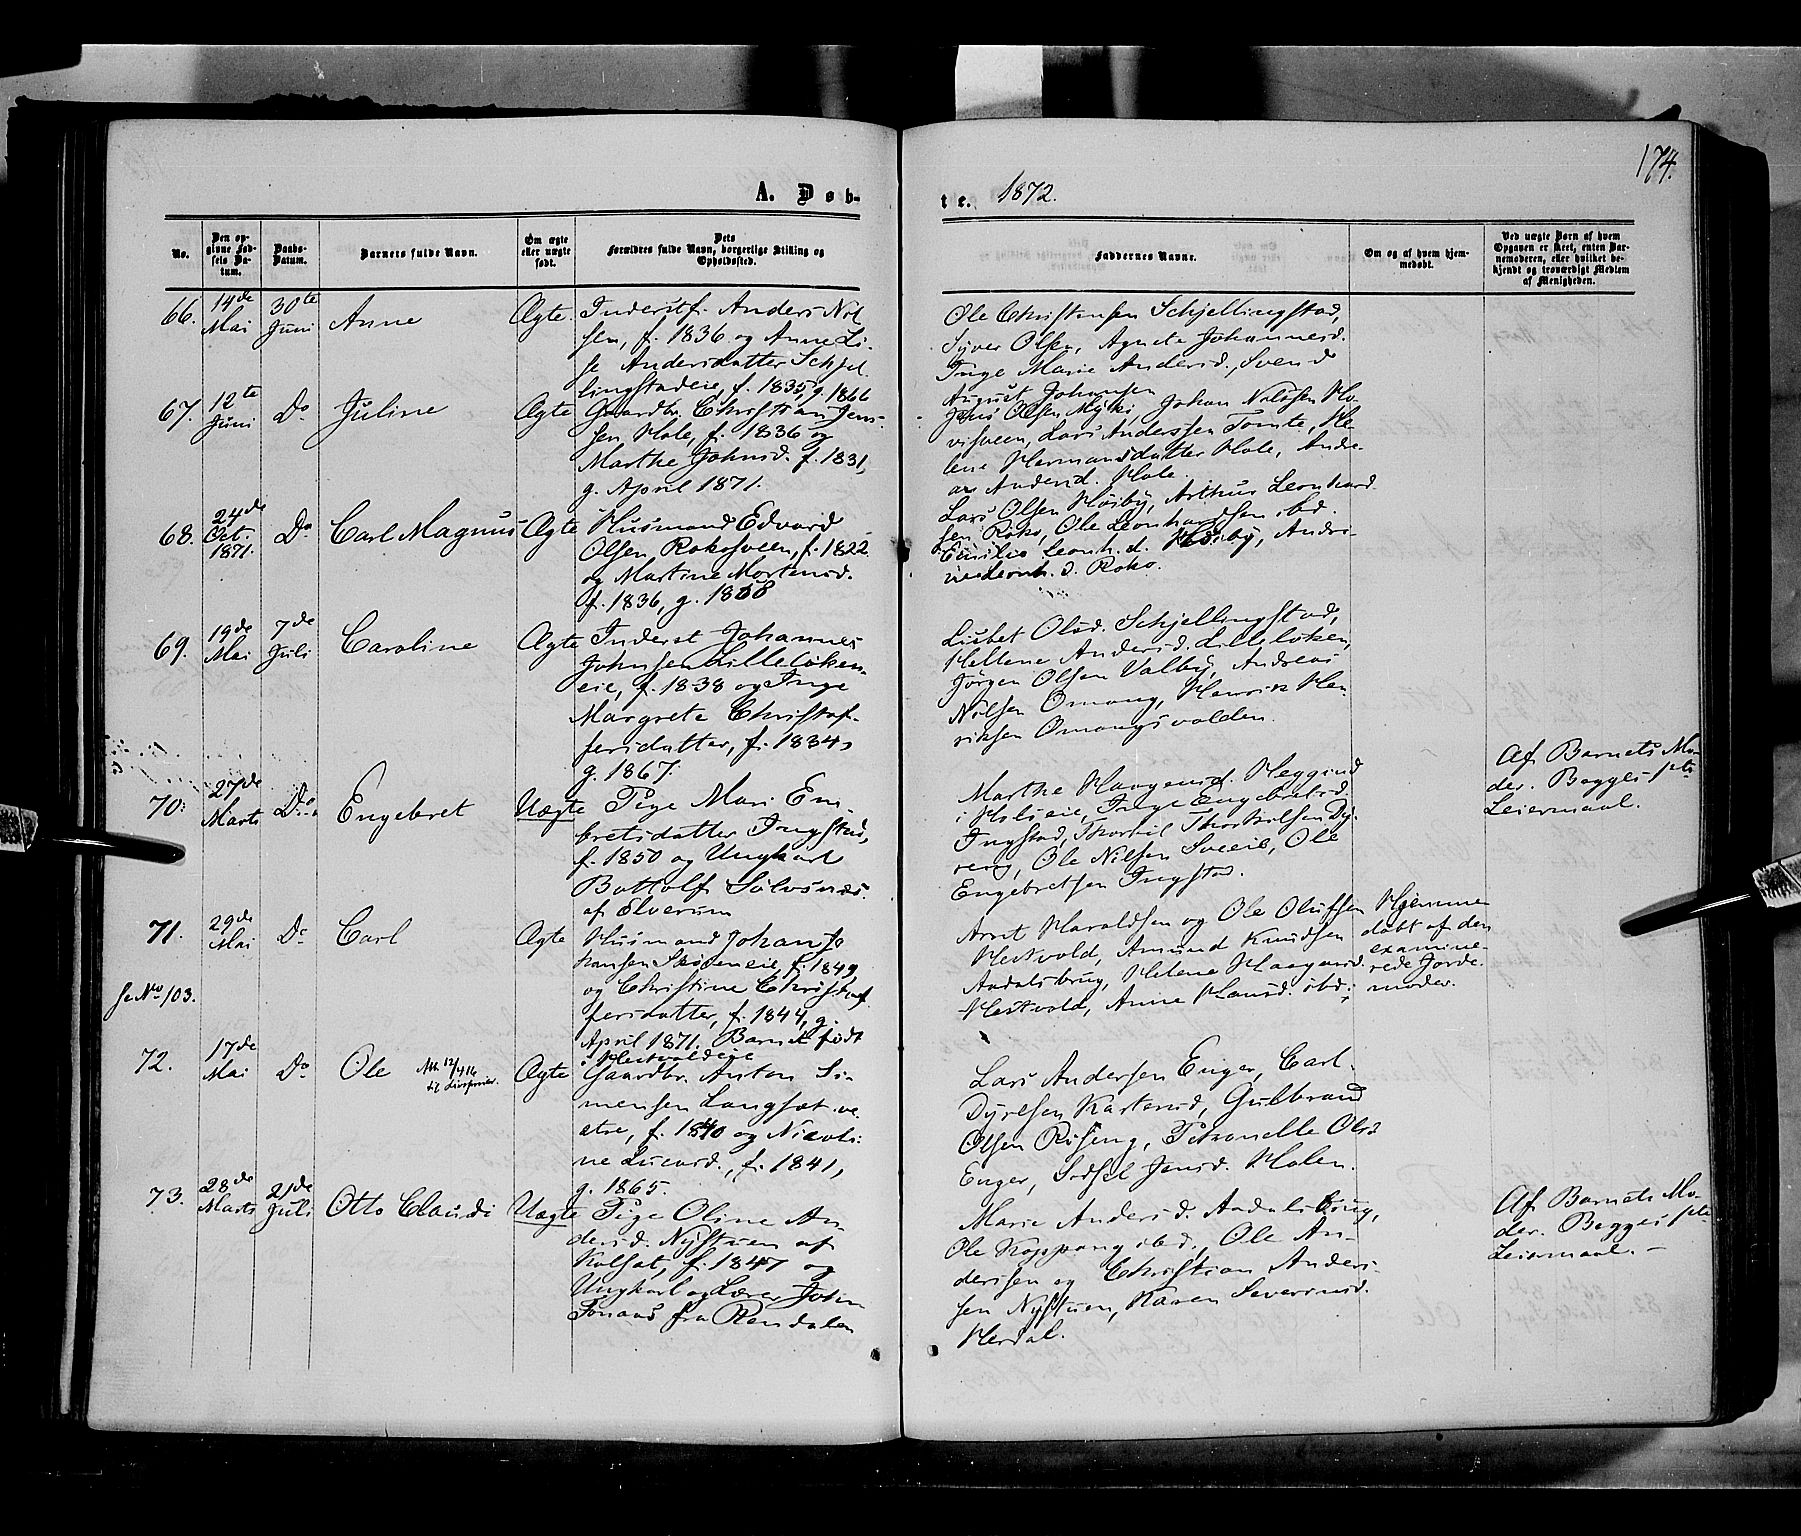 174.
A. Døb-
te. 1872.
No.
Den op-
givne Fød-
sels Da-
tum.
Daabs-
Datum.
Barnets fulde Navn.
Om ægte
eller uægte
født.
Dets
Forældres fulde Navn, borgerlige Stilling og
Opholdssted.
Faddernes Navne.
Om og af hvem hjem-
medøbt.
Ved uægte Børn af hvem
Opgaven er skeet, enten Bar-
nemoderen, eller hvilket be-
kjendt og troværdigt Medlem
af Menigheden.
66. 14de Mai
30te Juni
Anne
Ægte.
Inderstf. Anders Nil
sen, f. 1836 og Anne Li-
se Andersdatter Schjel
lingstadeie, f. 1835, g. 1866
Ole Christensen Schjellingstad,
Syver Olsen, Agnete Johannesd.
Inge Marie Andersd., Svend
August Johansen
67. 12te Juni
Do
Juline
Ægte
Gaardbr. Christian Jens-
sen, Hole, f. 1836 og
Marthe Johnsd. f. 1831,
g. April 1871.
Jens Olsen Myki, Johan Nilssen Ho-
visveen, Lars Anderssen Tomte, He-
lene Hermansdatter Hole, Andre-
as Andersd. Hole
68. 24de Oct. 1871.
Do
Carl Magnus
Ægte
Husmand Edvard
Olsen, Rokosveen, f. 1822
og Martine Mortensd.
f. 1836, g. 1868
Lars Olsen Høsby, Arthur Leonhard
sen Roko, Ole Leonhardsen ibd.
Emilie Leonh. d. Høsby, Andri-
ne Leonh. d. Roko.
69. 19de Mai
7de Juli
Caroline
Ægte
Inderst Johannes
Johnsen Lilleløken-
eie, f. 1838 og Inge
Margrete Christof-
fersdatter, f. 1834,
g. 1867.
Lisbet Olsd. Schjellingstad,
Hellene Andersd. Lilleløken,
Jørgen Olsen Valby, Andreas
Nilsen Omang, Henrik Hen-
riksen Omangsvolden.
70. 27de Marts
Do
Engebret
Uægte
Pige Mari Em-
bretsdatter Ingstad,
f. 1850 og Ungkarl
Bottolf Sølvsnes
af Elverum
Marthe Haagensd. Heggind
i Holseie, Inge Engebretsd.
Ingstad, Thorvil Thorkelsen Dy-
reng, Ole Nilsen Sveeie, Ole
Engebretsen Ingstad.
Af Barnets Mo-
der. Begges 1ste
Leiermaal.
71. 29de Mai
Do
Carl
Ægte
Husmand Johan Jo
hansen Skøieneie, f. 1849
og Christine Christof
fersdatter, f. 1844, g.
April 1871. Barnet født
i Hestvoldeie
Arnt Haraldsen og Ole Olufsen
Hestvold, Amund Knudsen
Aadalsbrug, Helene Haagensd.
Hestvold, Anne Hansd. ibd;
Hjemme
døbt af den
examine-
rede Jorde-
moder.
se No 103.
72. 17de Mai
Do
Ole
Att. 12/4 16
til Livsforsikr.
Ægte
Gaardbr. Anton Si-
mensen Langsæt ve
stre, f. 1840 og Nicoli-
ne Lucasd., f. 1841,
g. 1865.
Lars Andersen Enger, Carl
Dyresen Karterud, Gulbrand
Olsen Røseng, Petronelle Olsd
Enger, Sidsel Jensd. Holen.
73. 28de Marts
21de Juli
Otto Claudi
Uægte
Pige Oline An-
dersd. Nystuen af
Kolsat, f. 1847 og
Ungkarl og Lærer John
Jonaas fra Rendalen
Marie Andersd. Aadalsbrug,
Ole Koppang ibd., Ole An-
derssen og Christian Anders-
sen Nystuen, Karen Severinsd.
Herdal.
Af Barnets Mo-
der. Begges 1ste
Leiermaal. -